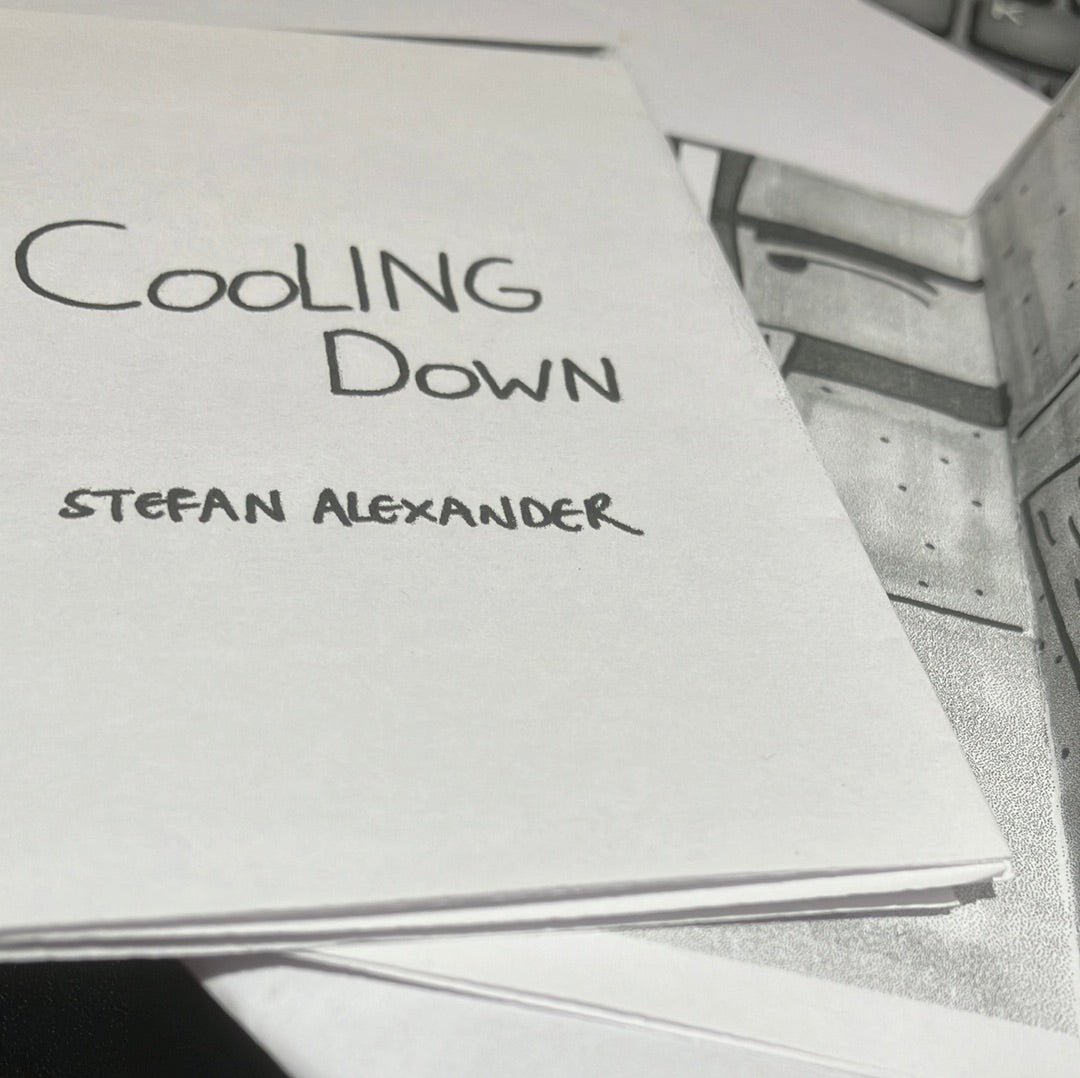 COOLING
DOWN
STEFAN ALEXANDER
K